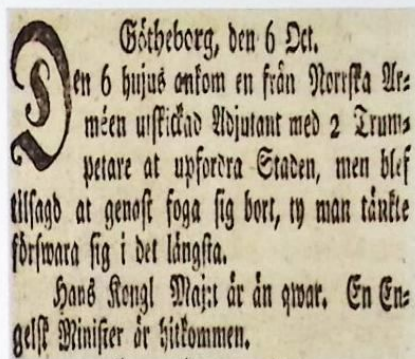 Götheborg, den 6 Oct.
Den 6 hujus ankom en från Norrska Ar-
méen utskickad Adjutant med 2 Trum-
petare at upfordra Staden, men blef
tilsagd at genast foga sig bort, ty man tänkte
förswara sig i det längsta.
Hans Kongl Maj:t är än qwar. En En-
gelsk Minister är hitkommen.